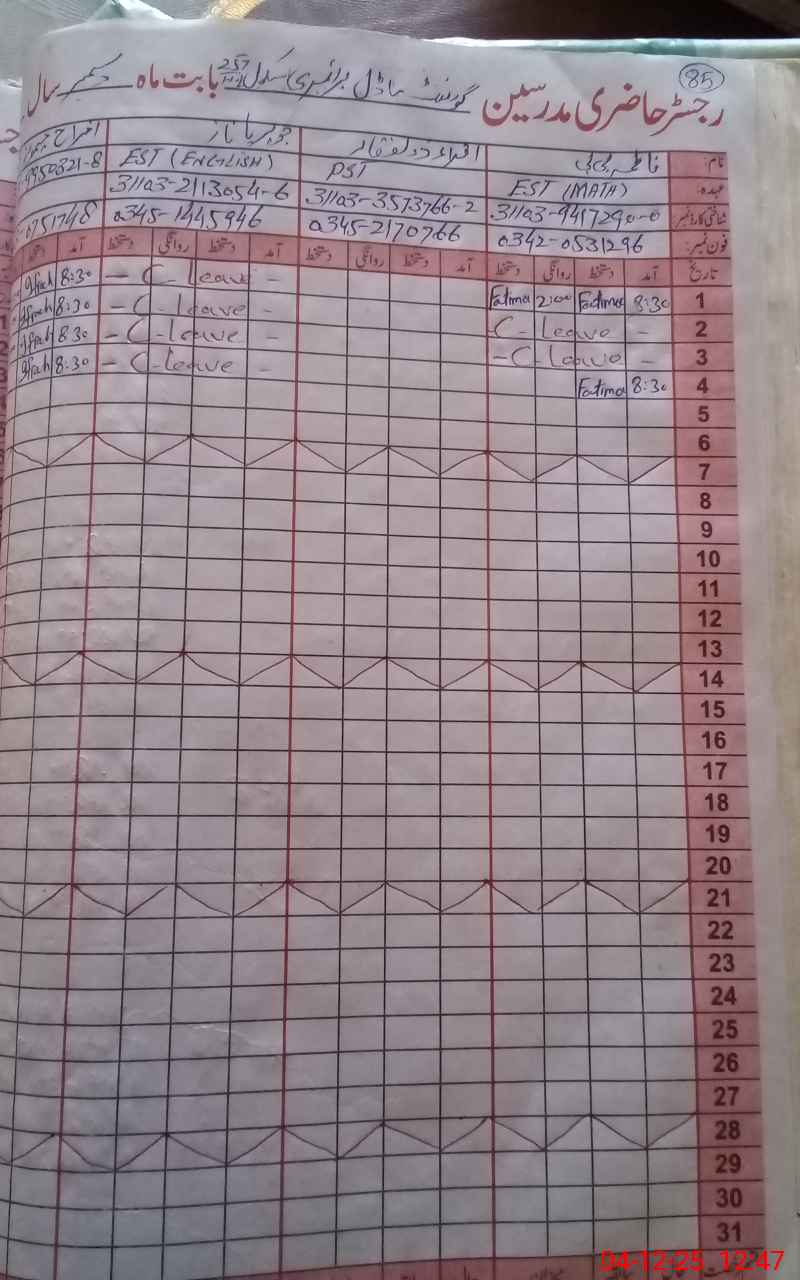 85
رجسٹر حاضری مدرسین گورنمنٹ ماڈل پرائمری سکول 257 بابت ماہ دسمبر سال
نام: فاطمہ بی بی اقراء ذوالفقار جویریا ناز
عہدہ: EST (MATH) PST EST (ENGLISH) 9950321-8
شناختی کارڈ نمبر 31103-9417290-0 31103-3573766-2 31103-2113054-6
فون نمبر: 0342-0531296 0345-2170766 0345-1445946 -0751748
تاریخ آمد دستخط روانگی دستخط آمد دستخط روانگی دستخط آمد دستخط روانگی دستخط آمد دستخط
1 8:30 Fatima 2:00 Fatima - C- leave - 8:30 Ifrah
2 - C- leave - - C- leave - 8:30 Ifrah
3 - C- leave - - C- leave - 8:30 Ifrah
4 8:30 Fatima - C- leave - 8:30 Ifrah
5
6
7
8
9
10
11
12
13
14
15
16
17
18
19
20
21
22
23
24
25
26
27
28
29
30
31
04-12-25 12:47